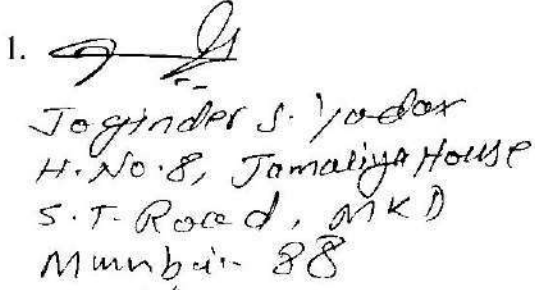 1.
Joginder S. Yadav
H. No. 8, Jamaliya House
S. T. Road, MKD
Mumbai - 88